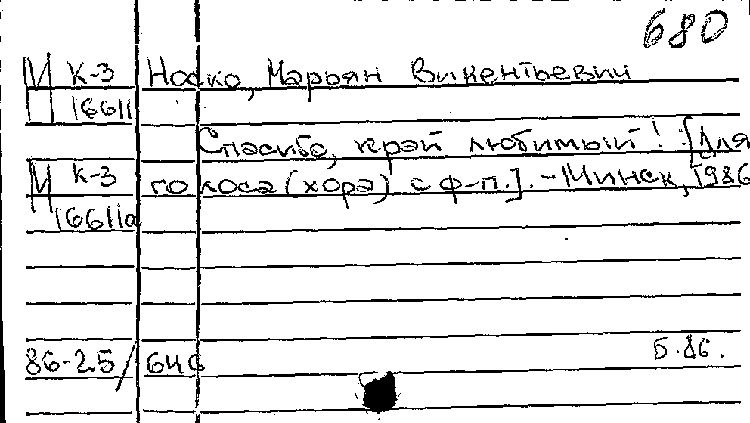 680
М К-3 Носко, Марьян Викентьевич
16611
Спасибо, край любимый! [Для
М К-3 голоса (хора) с ф-п.]. - Минск, 1986
16611а
86-2.5/646 5.86.